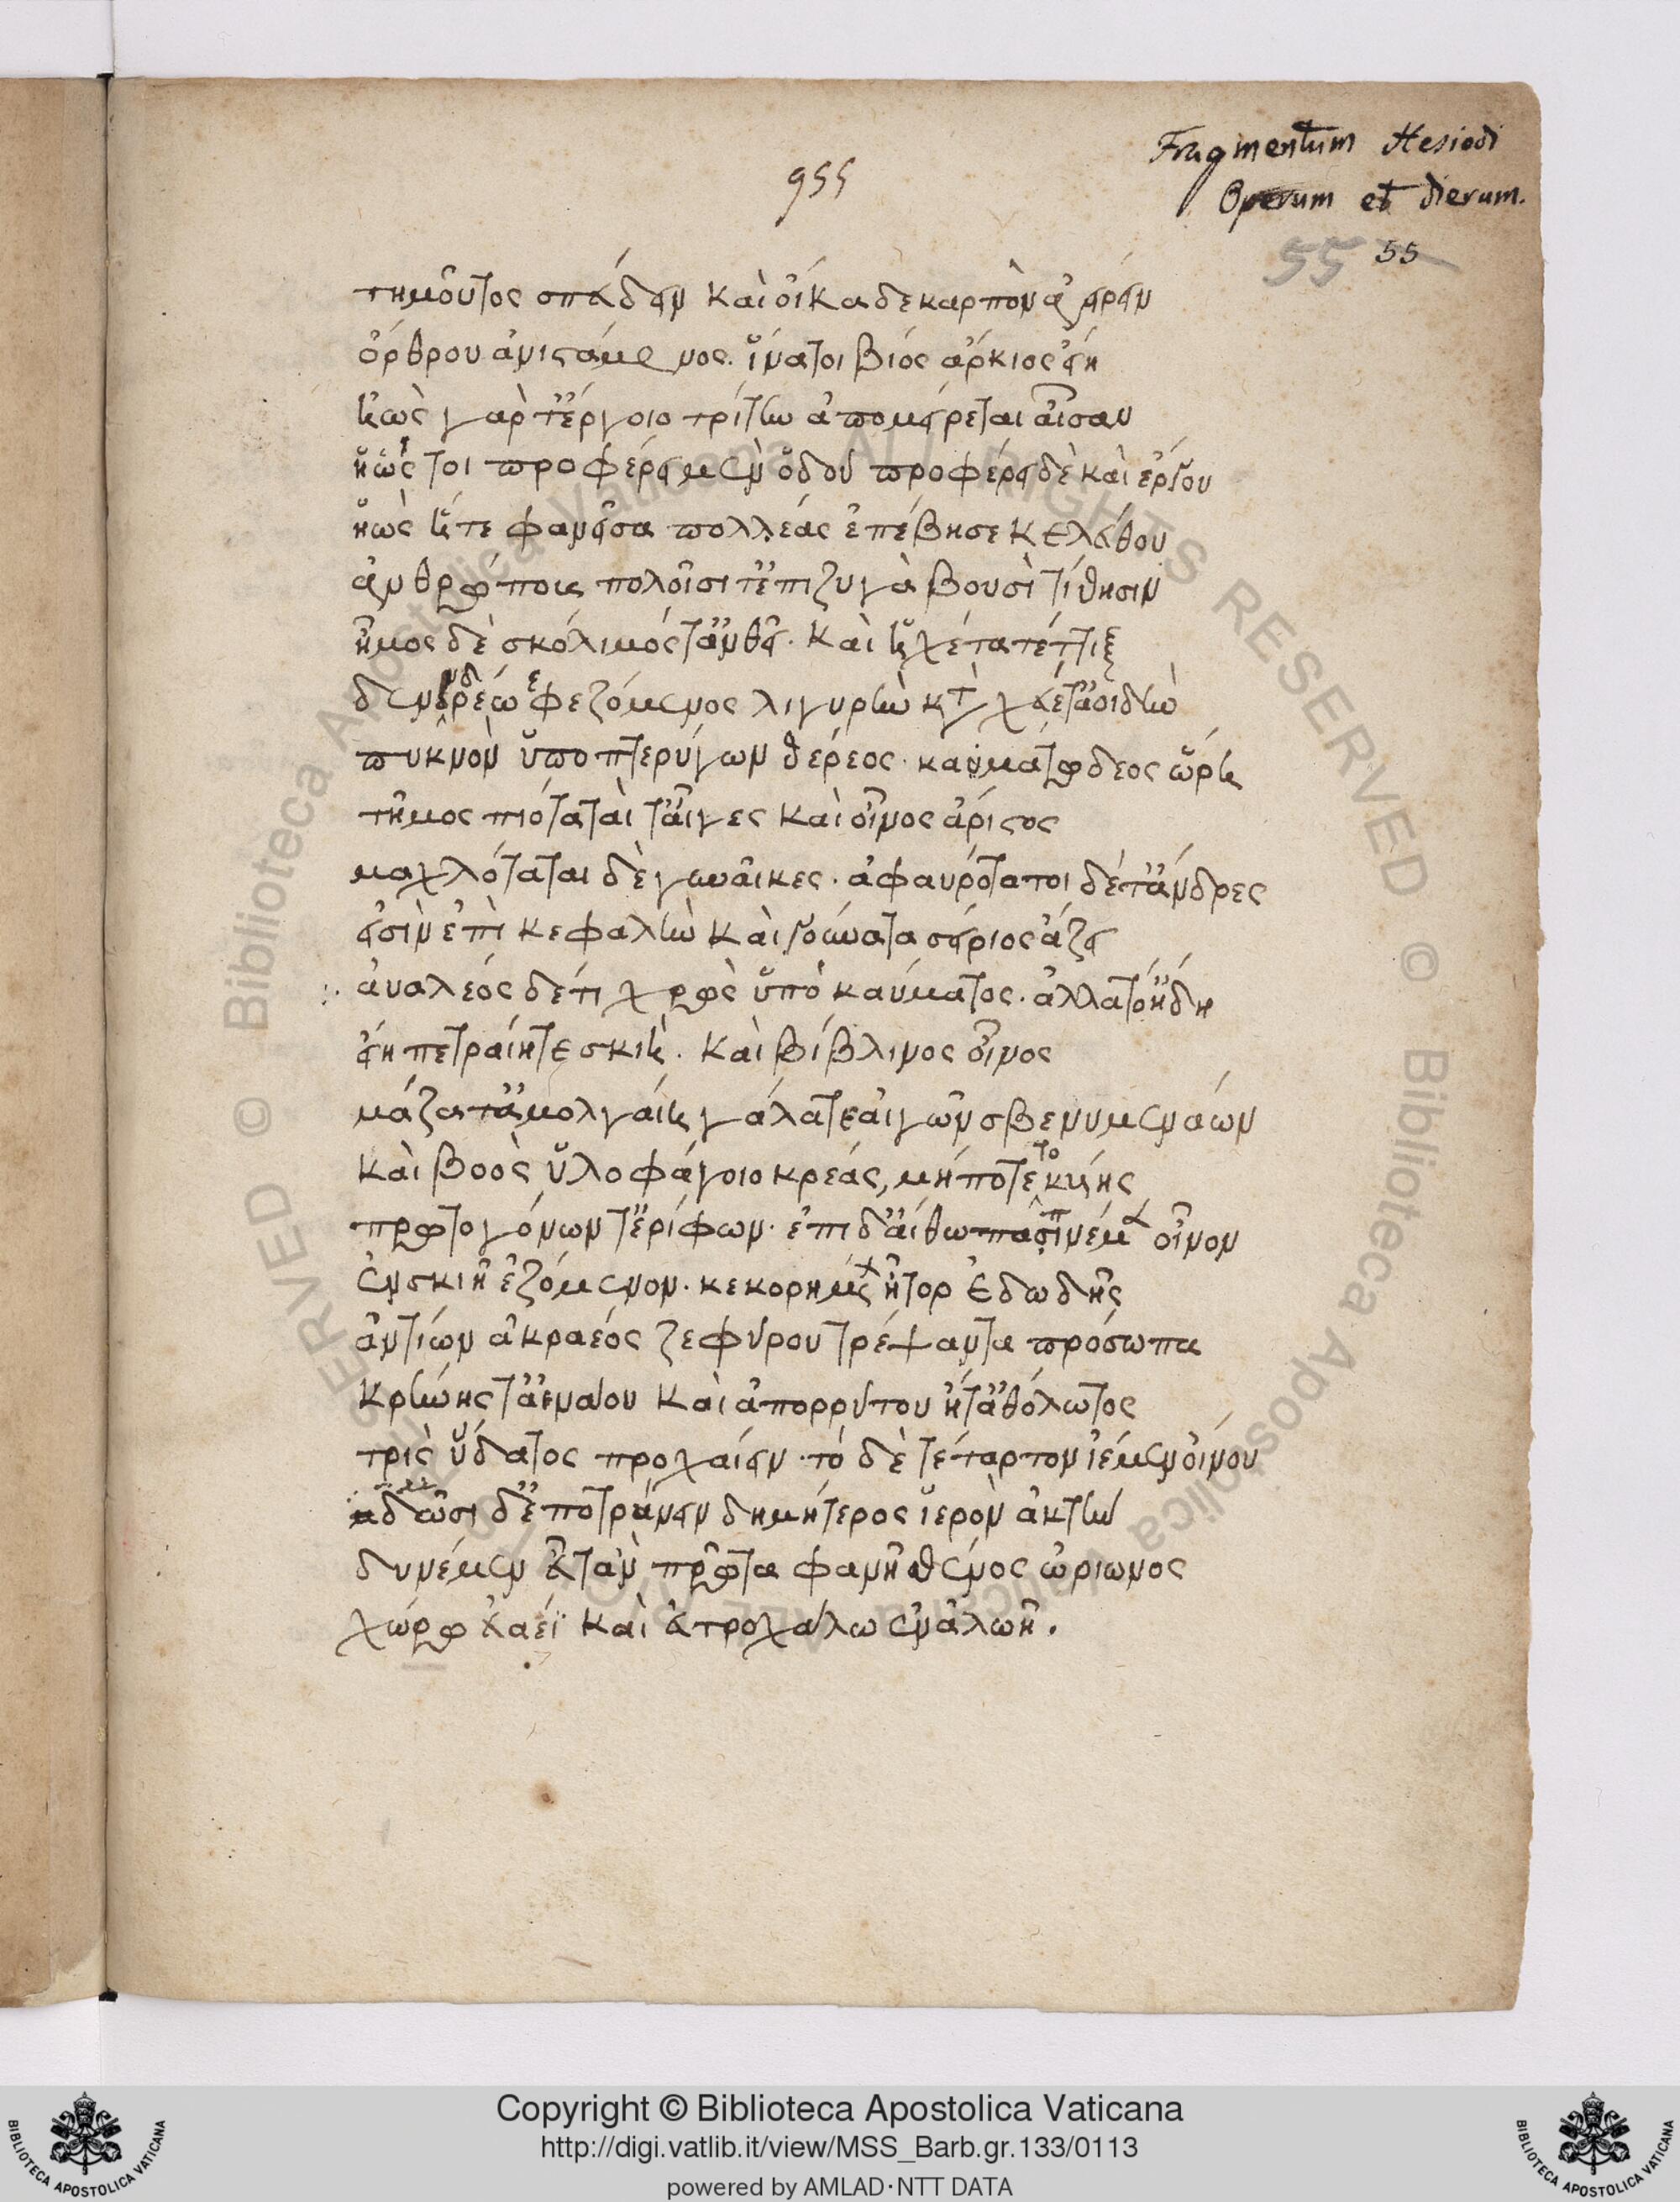 Fragmentum Hesiodi
Operum et dierum.
955
55 55
τημοῦτος σπάδειν καὶ οἴκαδε καρπὸν ἀγείρειν
ὄρθρου ἀνιστάμενος. ἵνα τοι βίος ἄρκιος εἴη
ἠὼς γὰρ τἔργοιο τρίτην ἀπομείρεται αἶσαν
ἠώς τοι προφέρει μὲν ὁδοῦ προφέρει δὲ καὶ ἔργου
ἠὼς ἥτε φανεῖσα πολλέας ἐπέβησε κελεύθου
ἀνθρώποις πολοῖσι τἔπι ζυγὰ βουσὶ τίθησιν
ἦμος δὲ σκόλιμός τἄνθει. καὶ ἠχέτα τέττιξ
δενδρέω ἐφεζόμενος λιγυρὴν κτ χεύετἀοιδὴν
πυκνὸν ὑπὸ πτερύγων θέρεος. καυματώδεος ὥρη
τῆμος πιόταταί τἆιγες καὶ οἶνος ἄριστος
μαχλόταται δὲ γυναῖκες. ἀφαυρότατοι δέ τἄνδρες
εἰσὶν ἐπὶ κεφαλὴν καὶ γούνατα σείριος ἄζει
ἀυαλέος δέτι χρὼς ὑπὸ καύματος. ἀλλὰ τότἤδη
εἴη πετραίητε σκιὴ. καὶ βίβλινος οἶνος
μάζα τἀμολγαίη γάλα τεἀιγῶν σβεννυμενάων
καὶ βοὸς ὑλοφάγοιο κρέας, μήποτε το κυίης
πρωτογόνων τἐρίφων. ἐπὶ δἀίθωπα πινέμεν οἶνον
ἐν σκιῇ ἑζόμενον. κεκορημένος ἦτορ ἐδωδῆς
ἀντίων ἀκραέος ζεφύρου τρέψαντα πρόσωπα
κρήνης τἀενάου καὶ ἀπορρύτου ἥτἀθόλωτος
τρὶς ὕδατος προχαίειν. τὸ δὲ τέταρτον ἱέμεν οἴνου
δμωσὶ δἐποτρύνειν δημήτερος ἱερὸν ἀκτὴν
δυνέμεν εὖταν πρῶτα φανῇ σθένος ὠρίωνος
χώρῳ εὐαέϊ καὶ εὐτροχάλω ἐν ἀλωῇ.
Copyright © Biblioteca Apostolica Vaticana
http://digi.vatlib.it/view/MSS_Barb.gr.133/0113
powered by AMLAD·NTT DATA